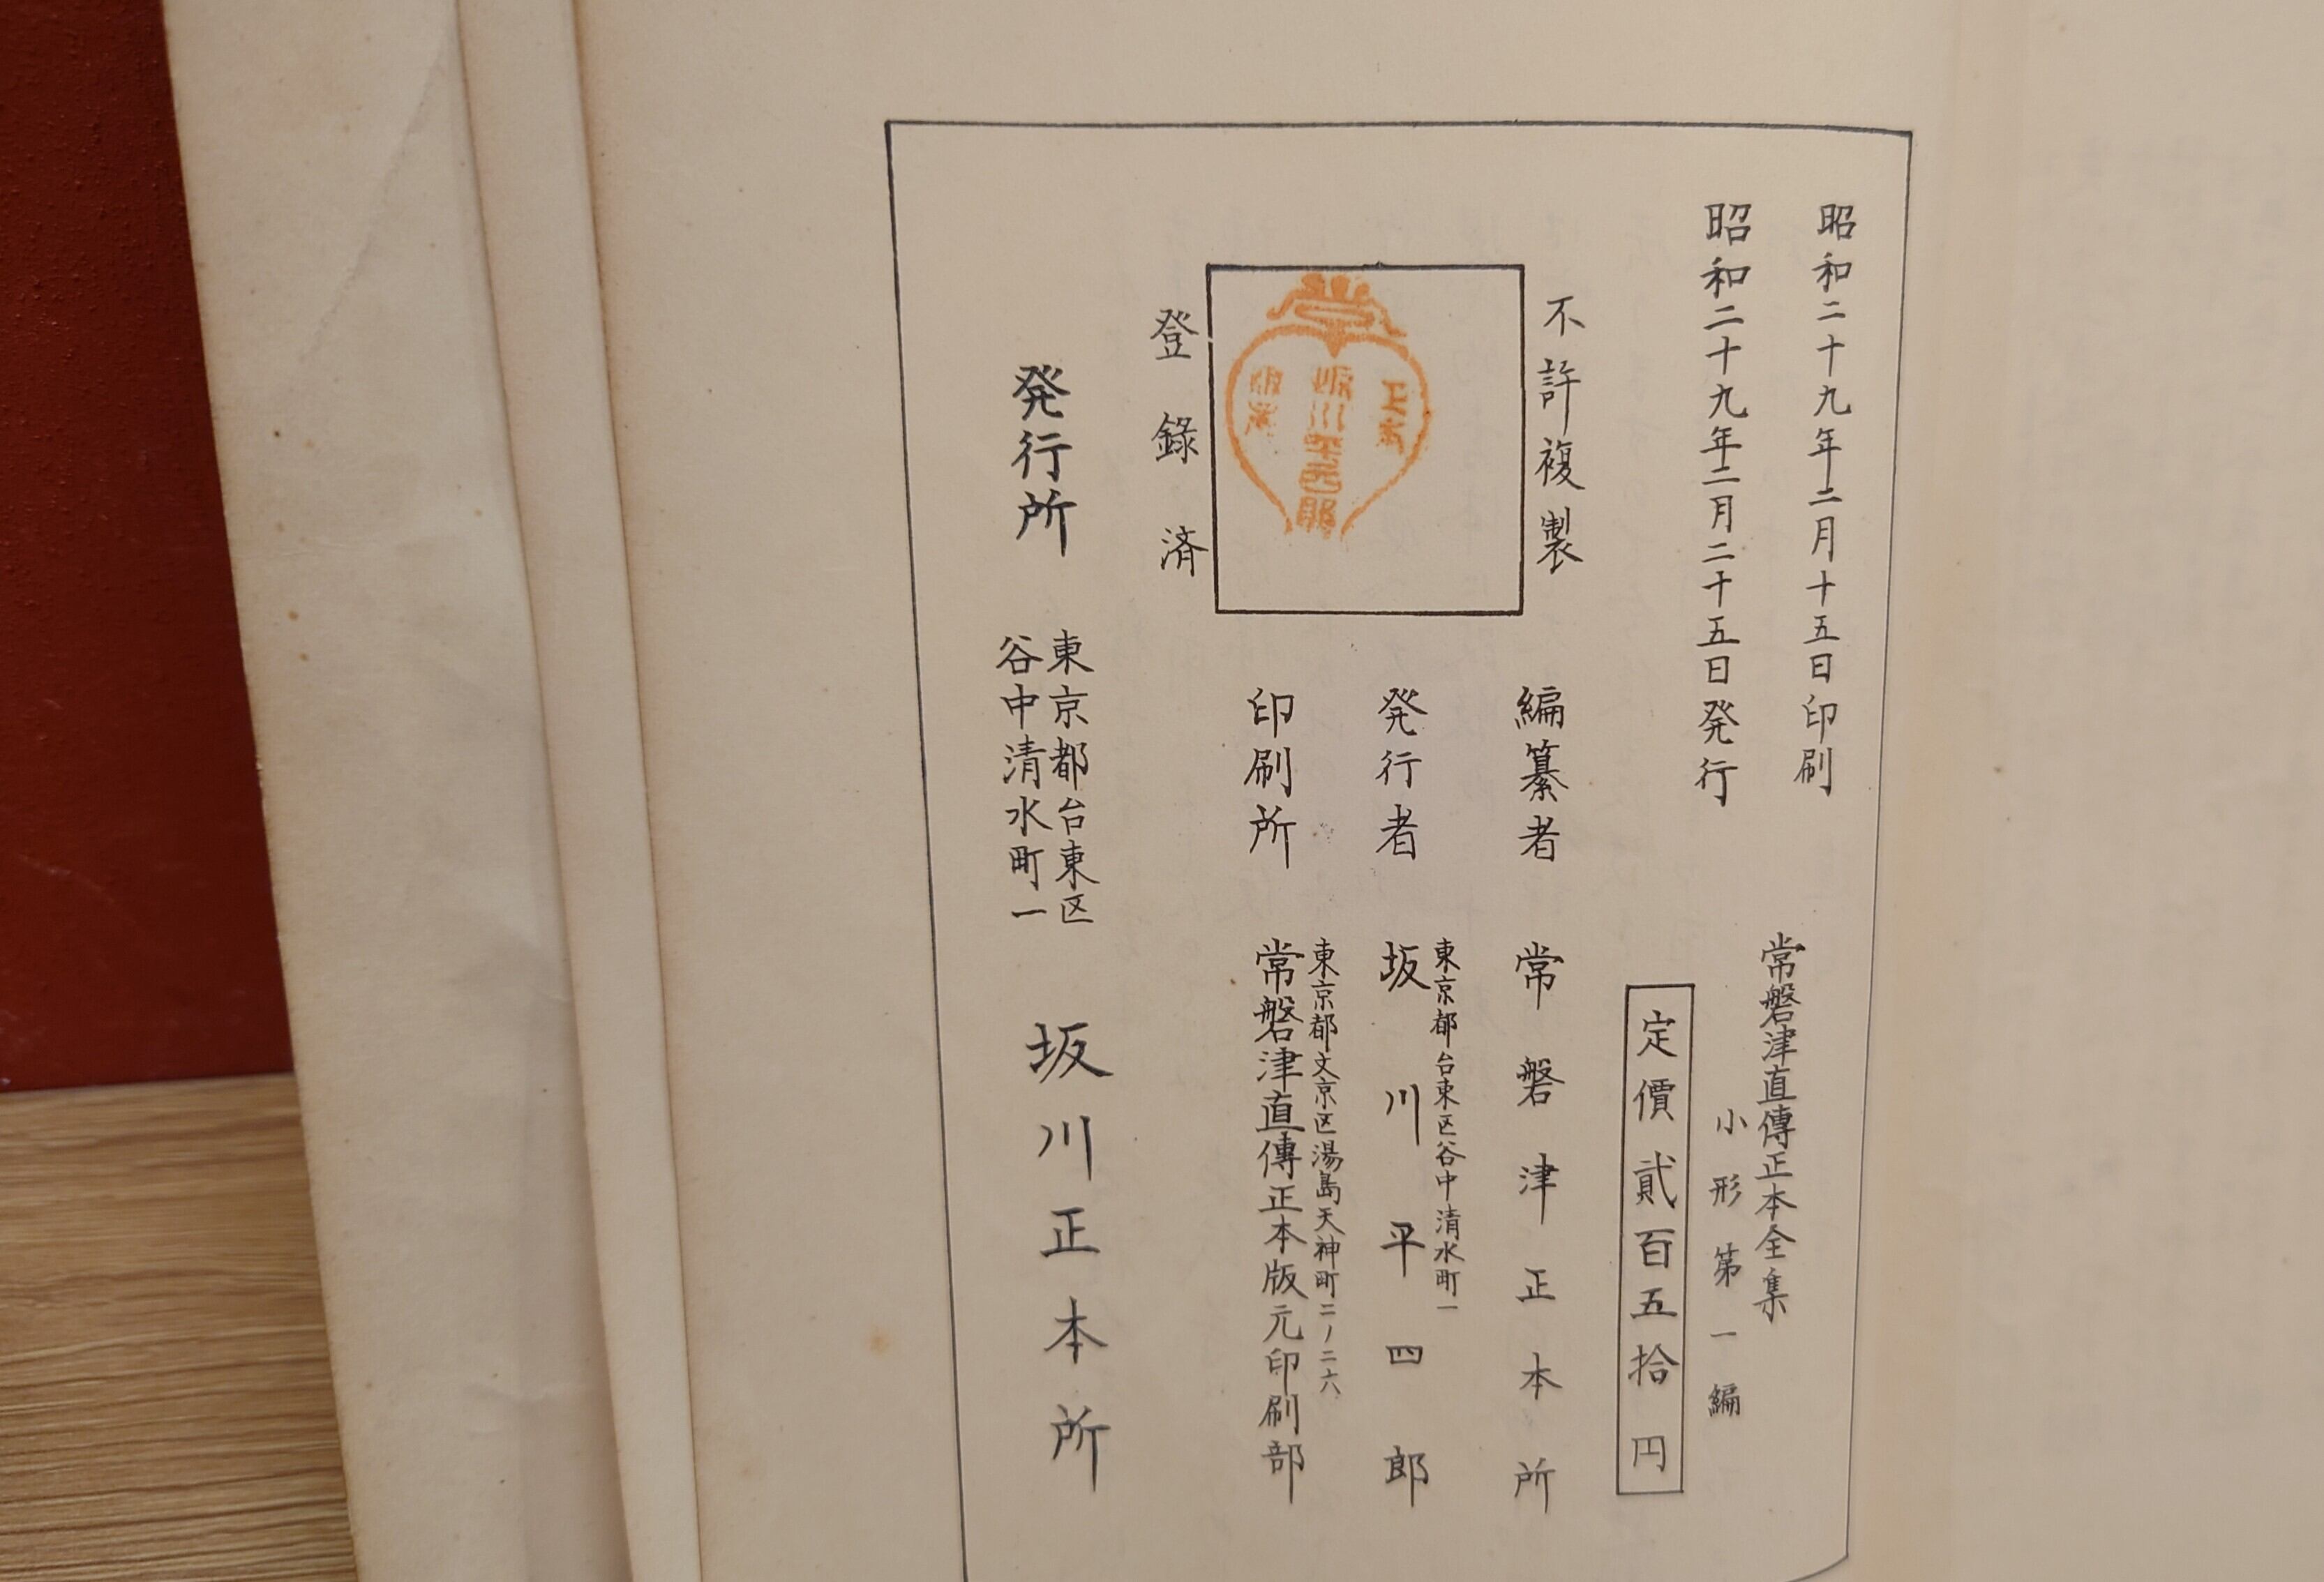 昭和二十九年二月十五日印刷
昭和二十九年二月二十五日発行
常磐津直傳正本全集
小形第一編
定價貳百五拾円
不許複製
正本
坂川平四郎
版元
登錄済
編纂者 常磐津正本所
東京都台東区谷中清水町一
発行者 坂川平四郎
東京都文京区湯島天神町二ノ二六
印刷所 常磐津直傳正本版元印刷部
発行所
東京都台東区
谷中清水町一
坂川正本所